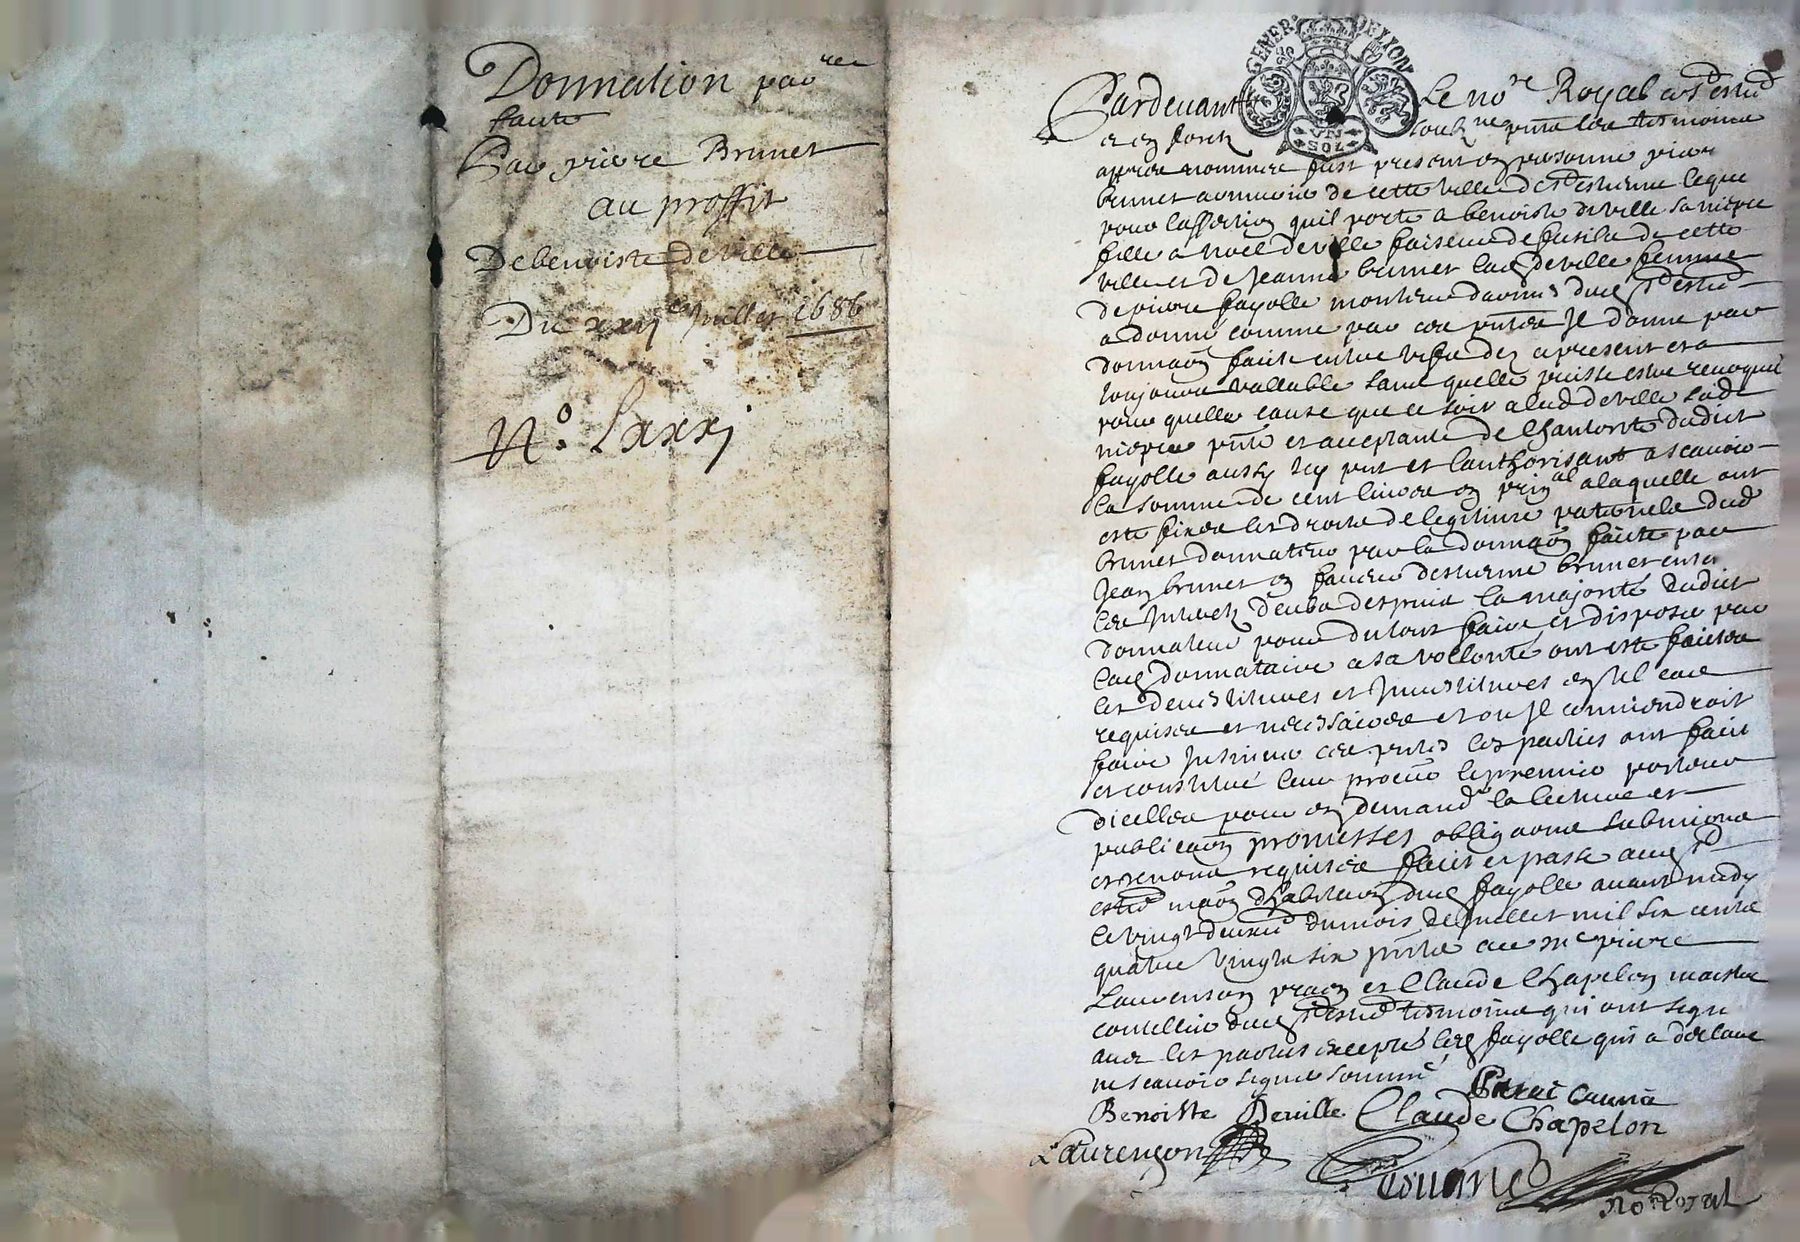 Donnation par
faicte
Par pierre Brunet
au proffit
De benoiste deville
Du xxij Juillet 1686
N°. Lxxxj
GENERALITE DE LION
VN SOL
Pardevant Le no.re Royal
et en
appres nommes fust present en personne pierre
brunet armurier de cette ville de St estienne lequel
pour laffection quil porte a benoiste deville sa niepce
fille a Noel deville faiseur de fusils de cette
ville et de Jeanne brunet lad deville femme
de pierre fayolle monteur darmes dud St estie
a donné comme par ces pntes Il donne par
donnaon faicte entre vifs des a present et a
toujours vallable sans quelle puisse estre revoquée
pour quelle cause que ce soit a lad deville sad
niepce pnte et acceptante de lhautorité dudict
fayolle aussy icy pnt et lauthorisant a scavoir
la somme de cent livres en prinal a laquelle ont
esté fixés les droits de legitime paternels dud
brunet donnateur par la donnaon faicte par
Jean brunet en faveur destienne brunet
les Interetz deubs despuis la majorité dudict
donnateur pour du tout faire et disposer par
lad donnataire a sa vollonté ont esté faictes
les devestitures et Investitures en tel cas
requises et necessaires et ou Il conviendroit
faire Insinuer ces pntes les parties ont faict
et constitué leur procur le premier porteur
dicelles pour en demander la lecture et
publicaon promesses obligaons submions
et renons requises faict et passé aud St
estie maon dhabitaon dud fayolle avant midy
le vingt deuxie du mois de Juillet mil six cents
quatre vingts six pnts a ce Me pierre
Laurenson pracn et Claude Chapelon maistre
coutellier dud St estie tesmoins qui ont signé
avec les parties excepté led fayolle qui a declaré
ne scavoir signer sommé
Benoiste Deville Claude Chapelon
Laurençon
No Royal